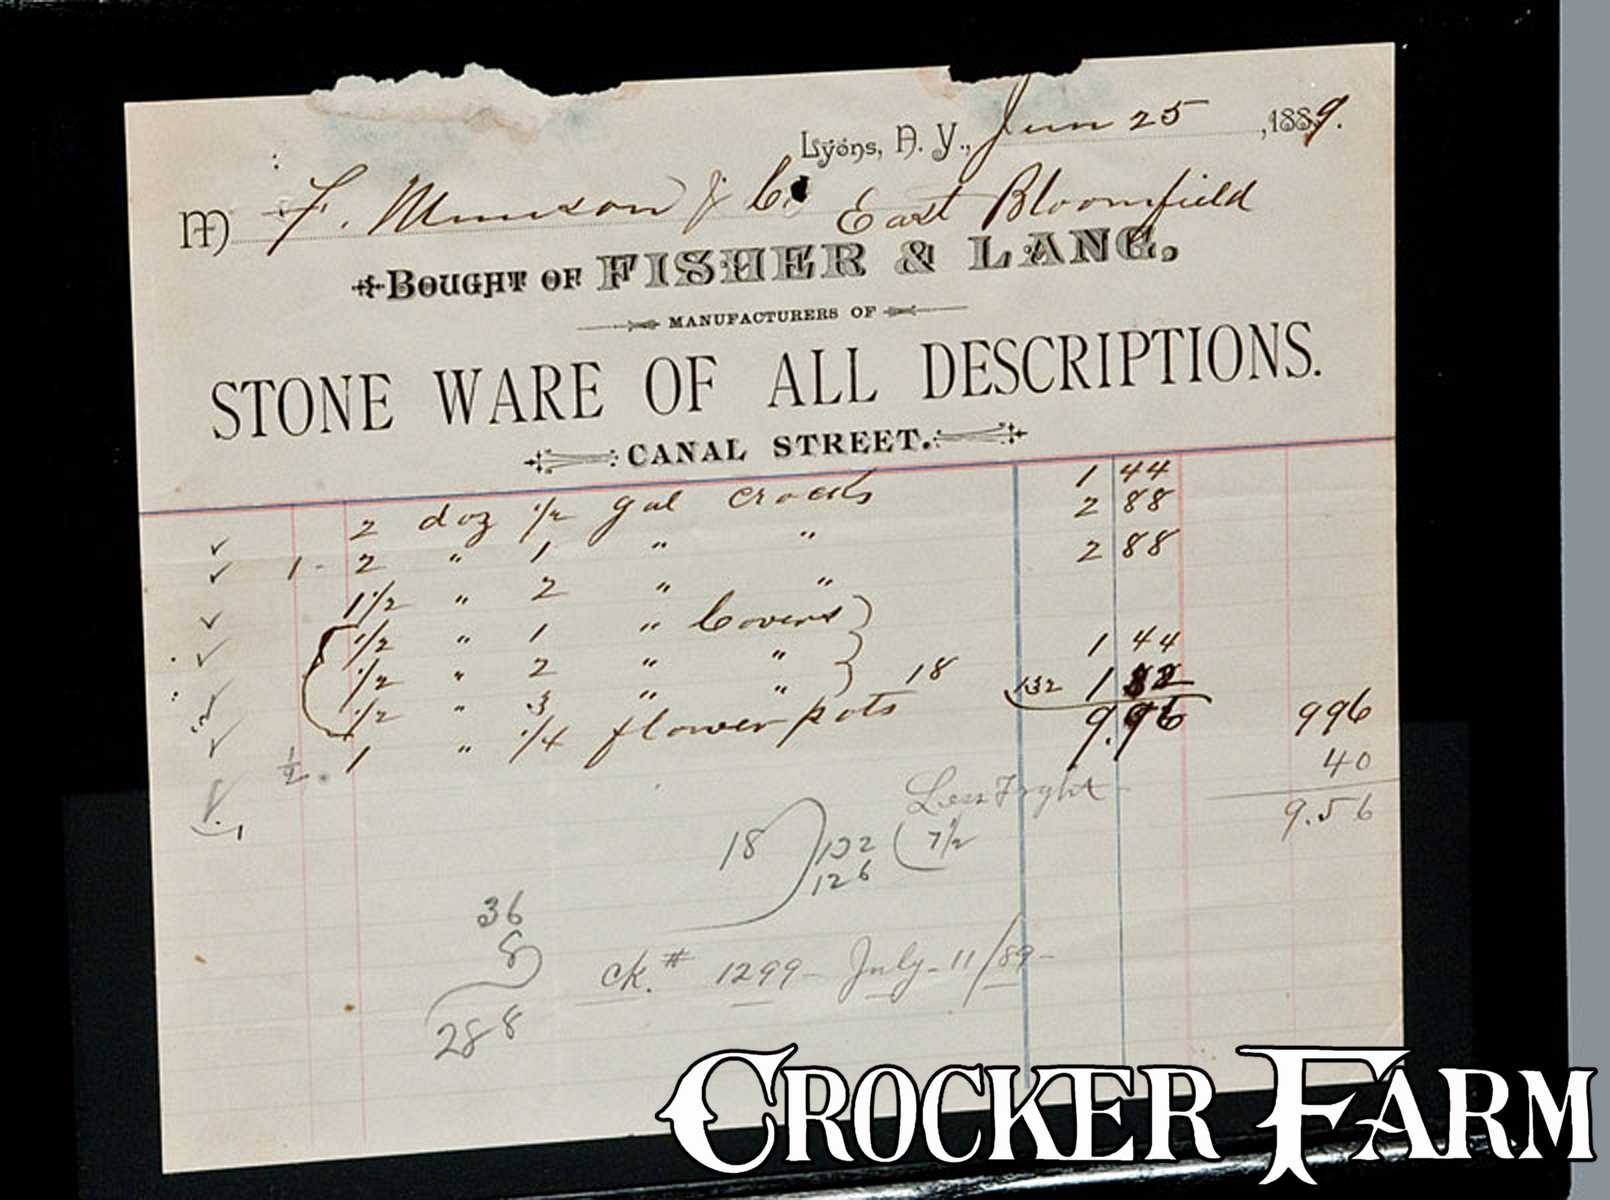 Lyons, N. Y., Jun 25, 1889.
M F. Munson & Co East Bloomfield
Bought of FISHER & LANG,
MANUFACTURERS OF
STONE WARE OF ALL DESCRIPTIONS.
CANAL STREET.
2 doz 1/2 gal crocks 1 44
1 - 2 " 1 " " 2 88
1 1/2 " 2 " " 2 88
1/2 " 1 " Covers
1/2 " 2 " " 1 44
1/2 " 3 " " 18 132 1 32
1/2 1 " 1/4 flower pots 9.96 996
Less Frght 40
9.56
18 132 7 1/2
126
36
8
288
ck. # 1299 - July - 11/89 -
CROCKER FARM